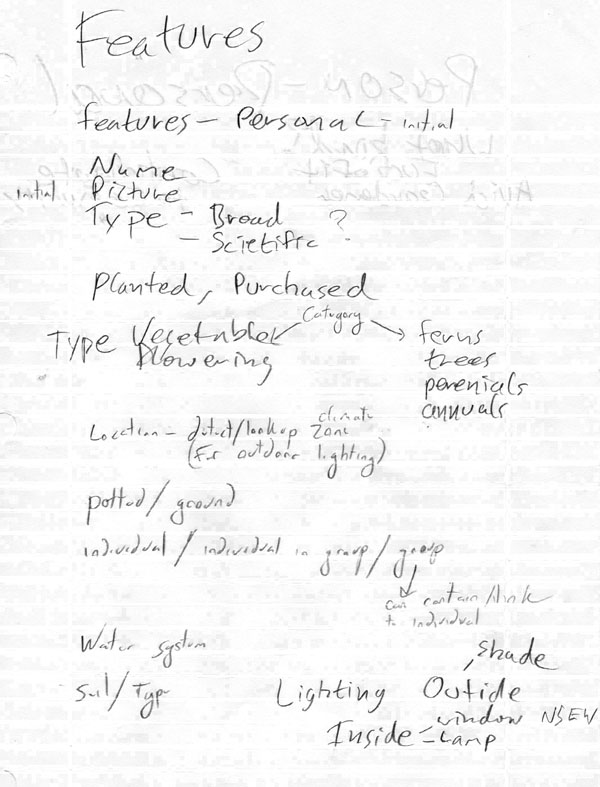 Features
features - Personal - initial
Name
initial Picture
Type - Broad ?
- Scietific
Planted, Purchased
Category
Type Vegetable ferns
flowering trees
perenials
annuals
climate
Location - detect/lookup zone
(For outdoor lighting)
potted / ground
individual / individual in group / group
can contain/link
to individual
Water system
, shade
Soil/Type Lighting Outide
Inside - window NSEW
- Lamp